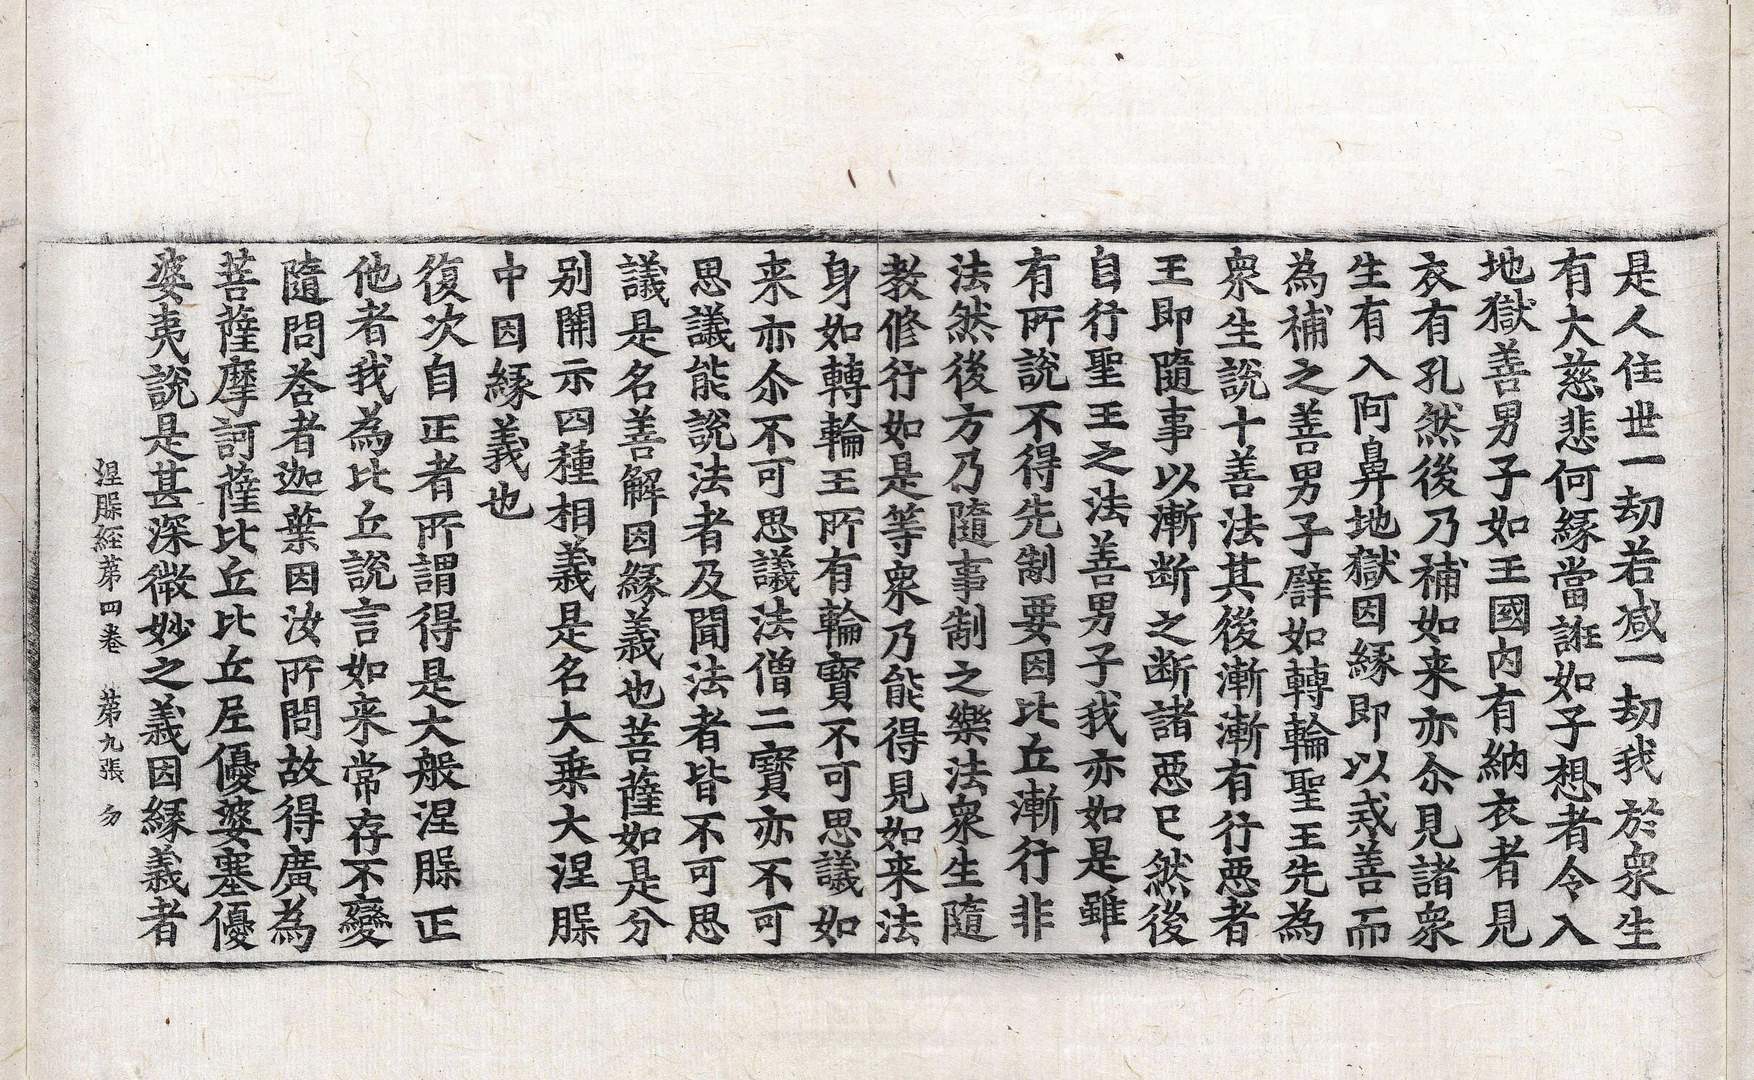 是人住世一劫若減一劫我於衆生
有大慈悲何緣當誑如子想者令入
地獄善男子如王國內有納衣者見
衣有孔然後乃補如来亦尒見諸衆
生有入阿鼻地獄因緣即以戒善而
為補之善男子譬如轉輪聖王先為
衆生說十善法其後漸漸有行惡者
王即隨事以漸断之断諸惡已然後
自行聖王之法善男子我亦如是雖
有所說不得先制要因比丘漸行非
法然後方乃隨事制之樂法衆生隨
教修行如是等衆乃能得見如来法
身如轉輪王所有輪寶不可思議如
来亦尒不可思議法僧二寶亦不可
思議能說法者及聞法者皆不可思
議是名善解因緣義也菩薩如是分
別開示四種相義是名大乗大涅槃
中因緣義也
復次自正者所謂得是大般涅槃正
他者我為比丘說言如来常存不變
隨問荅者迦葉因汝所問故得廣為
菩薩摩訶薩比丘比丘尼優婆塞優
婆夷說是甚深微妙之義因緣義者
涅槃經苐四卷 苐九張 勿